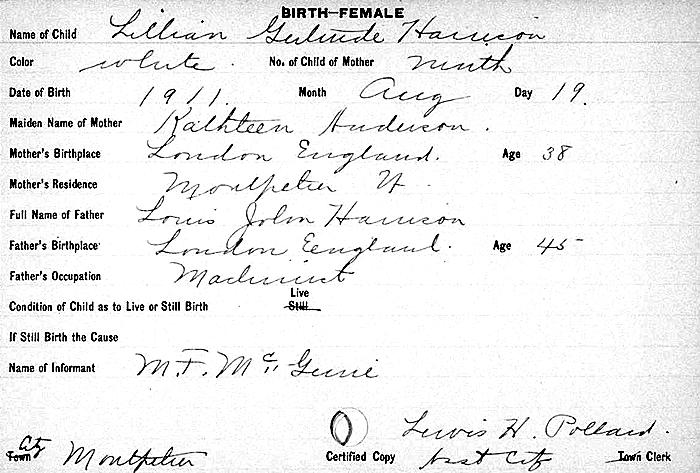 BIRTH—FEMALE
Name of Child Lillian Gertrude Harrison
Color white. No. of Child of Mother ninth
Date of Birth 1911. Month Aug Day 19.
Maiden Name of Mother Kathleen Anderson.
Mother's Birthplace London England. Age 38
Mother's Residence Montpelier Vt.
Full Name of Father Louis John Harrison
Father's Birthplace London England. Age 45
Father's Occupation Machinist
Live
Condition of Child as to Live or Still Birth Still
If Still Birth the Cause
Name of Informant M.F. McGuire
Lewis H. Pollard.
City
Town Montpelier Certified Copy Asst City Town Clerk